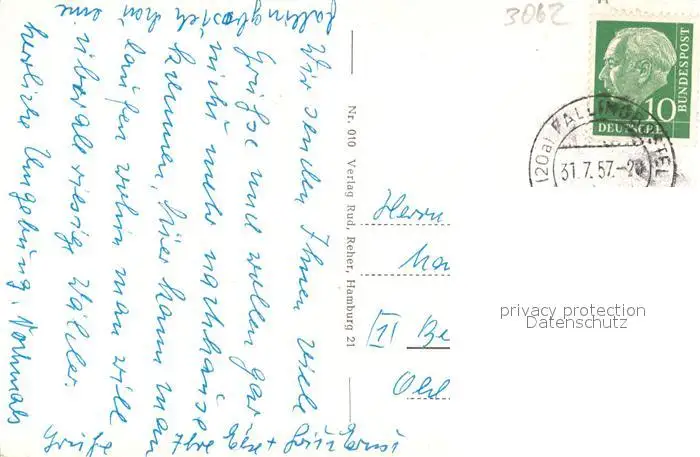 3062
10
BUNDESPOST
DEUTSCHE
(20a) FALLINGBOSTEL
31.7.57.-20
Wir senden Ihnen viele
Grüße und wollen gar
nicht mehr nachhause
kommen, hier kann man
laufen wohin man will
überall riesige Wälder.
Fallingbostel hat eine
herrliche Umgebung. Nochmals
Grüße Ihre
Nr. 010 Verlag Rud. Reher, Hamburg 21
Herrn
[1] Be
privacy protection
Datenschutz